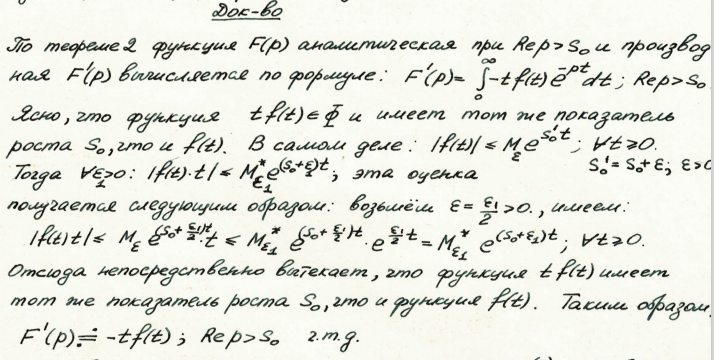 Док-во
По теореме 2 функция F(p) аналитическая при Re p > S₀ и производ
ная F'(p) вычисляется по формуле: F'(p) = ∫₀^∞ -t f(t) e^{-pt} dt ; Re p > S₀
Ясно, что функция t f(t) ∈ Φ и имеет тот же показатель
роста S₀, что и f(t). В самом деле: |f(t)| ≤ M_ε e^{S₀'t} ; ∀t ⩾ 0.
S₀' = S₀ + ε; ε > 0
Тогда ∀ε₁ > 0: |f(t)·t| ≤ M*_{ε₁} e^{(S₀+ε₁)t} ; эта оценка
получается следующим образом: возьмём ε = ε₁/2 > 0., имеем:
|f(t) t| ≤ M_ε e^{(S₀+ε₁/2)t} · t ≤ M*_{ε₁} e^{(S₀+ε₁/2)t} · e^{ε₁/2 t} = M*_{ε₁} e^{(S₀+ε₁)t} ; ∀t ⩾ 0.
Отсюда непосредственно вытекает, что функция t f(t) имеет
тот же показатель роста S₀, что и функция f(t). Таким образом,
F'(p) ≓ -t f(t) ; Re p > S₀ ч.т.д.